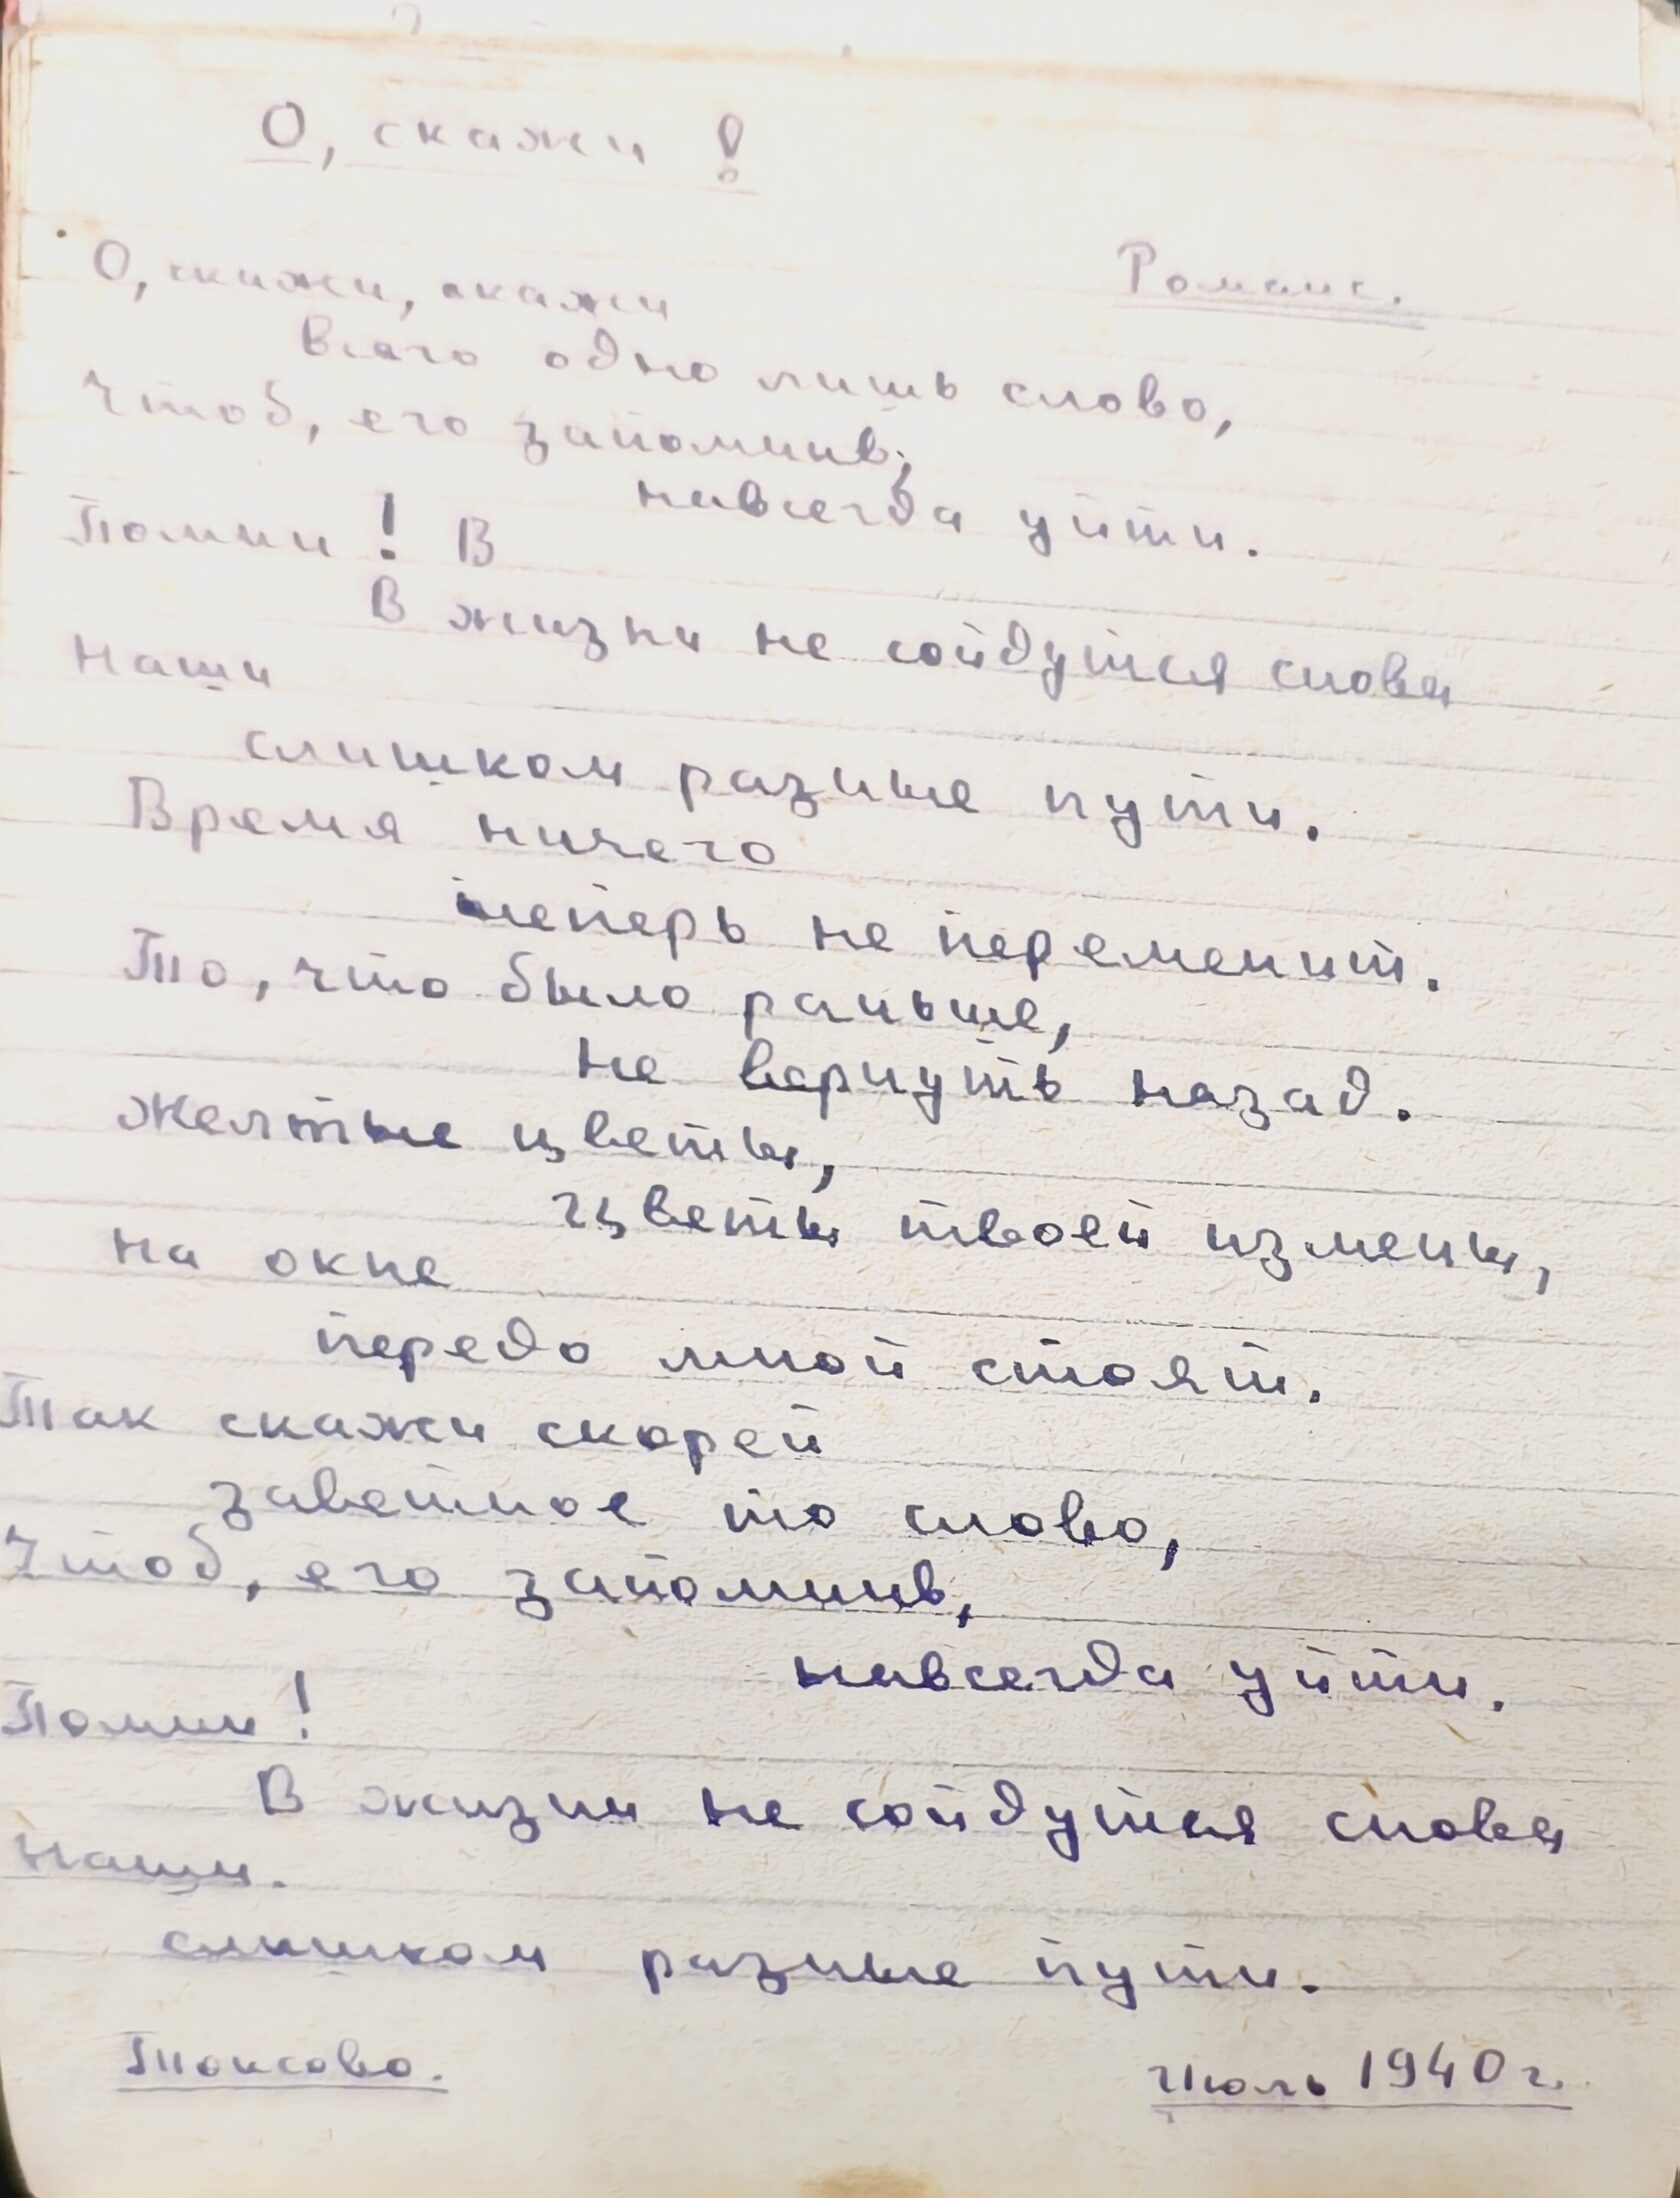 О, скажи!
Романс.
О, скажи, скажи
Всего одно лишь слово,
Чтоб, его запомнив,
навсегда уйти.
Помни! В
В жизни не сойдутся снова
Наши
слишком разные пути.
Время ничего
теперь не переменит.
То, что было раньше,
не вернуть назад.
Желтые цветы,
цветы твоей измены,
на окне
передо мной стоят.
Так скажи скорей
заветное то слово,
Чтоб, его запомнив,
навсегда уйти.
Помни!
В жизни не сойдутся снова
Наши.
слишком разные пути.
Токсово.
Июль 1940 г.